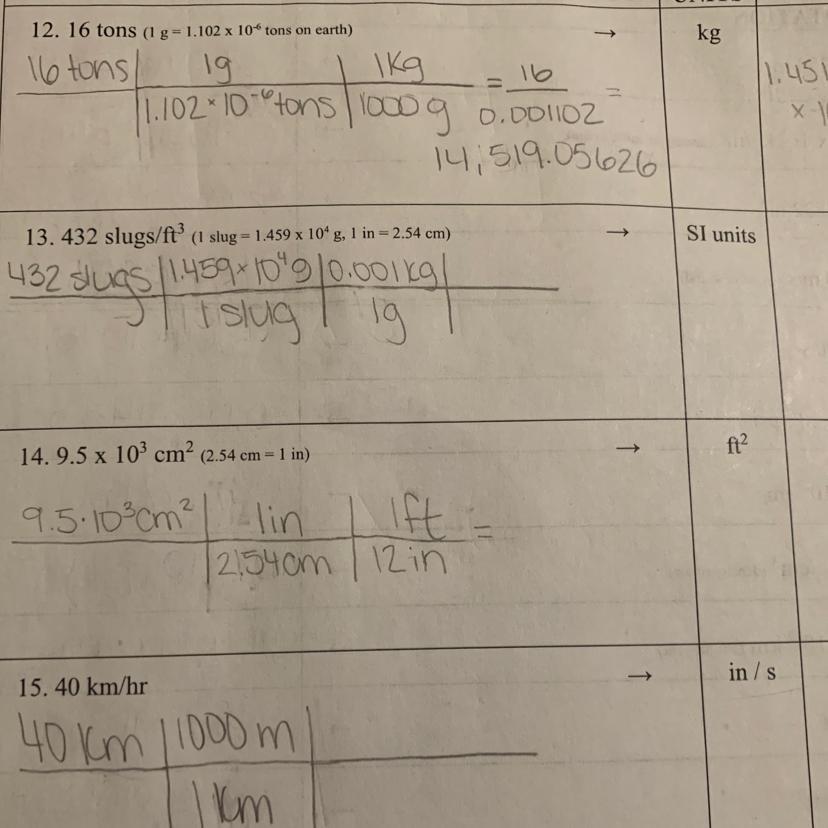 12. 16 tons (1 g = 1.102 x 10⁻⁶ tons on earth) → kg
16 tons | 1g | 1Kg = 16 =
1.102 × 10⁻⁶ tons | 1000 g 0.001102
14,519.05626
1.451
x 1
13. 432 slugs/ft³ (1 slug = 1.459 x 10⁴ g, 1 in = 2.54 cm) → SI units
432 slugs | 1.459 × 10⁴ g | 0.001 kg |
1 slug | 1g |
14. 9.5 x 10³ cm² (2.54 cm = 1 in) → ft²
9.5 · 10³ cm² | 1in | 1ft =
2.54 cm | 12 in
15. 40 km/hr → in / s
40 Km | 1000 m |
1 Km |